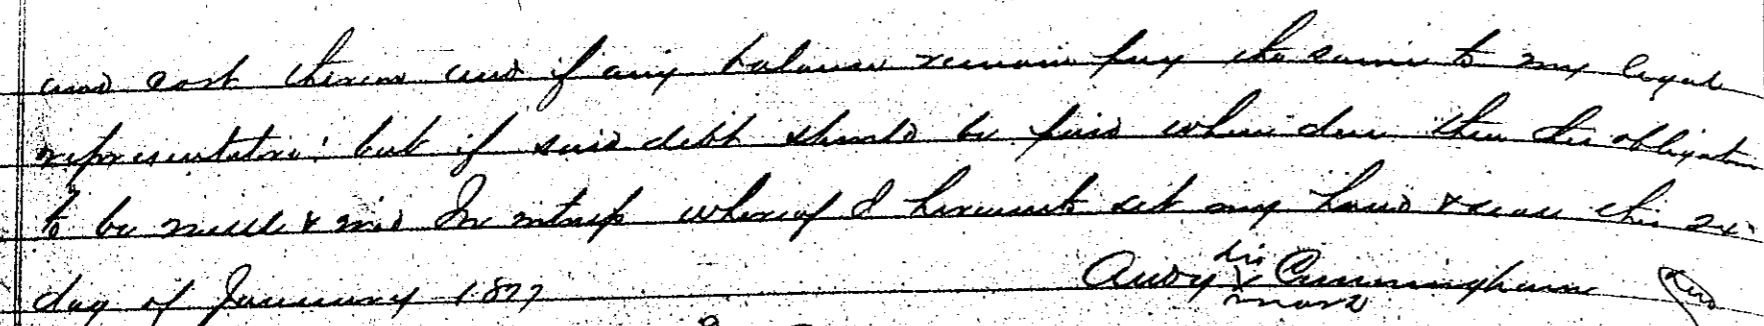 and cost therein and if any balance remain pay the same to my legal
representative: but if said debt should be paid when due then this obligation
to be null & void In witness whereof I hereunto set my hand & seal this
day of January 1877 Andy his X mark Cunningham Seal